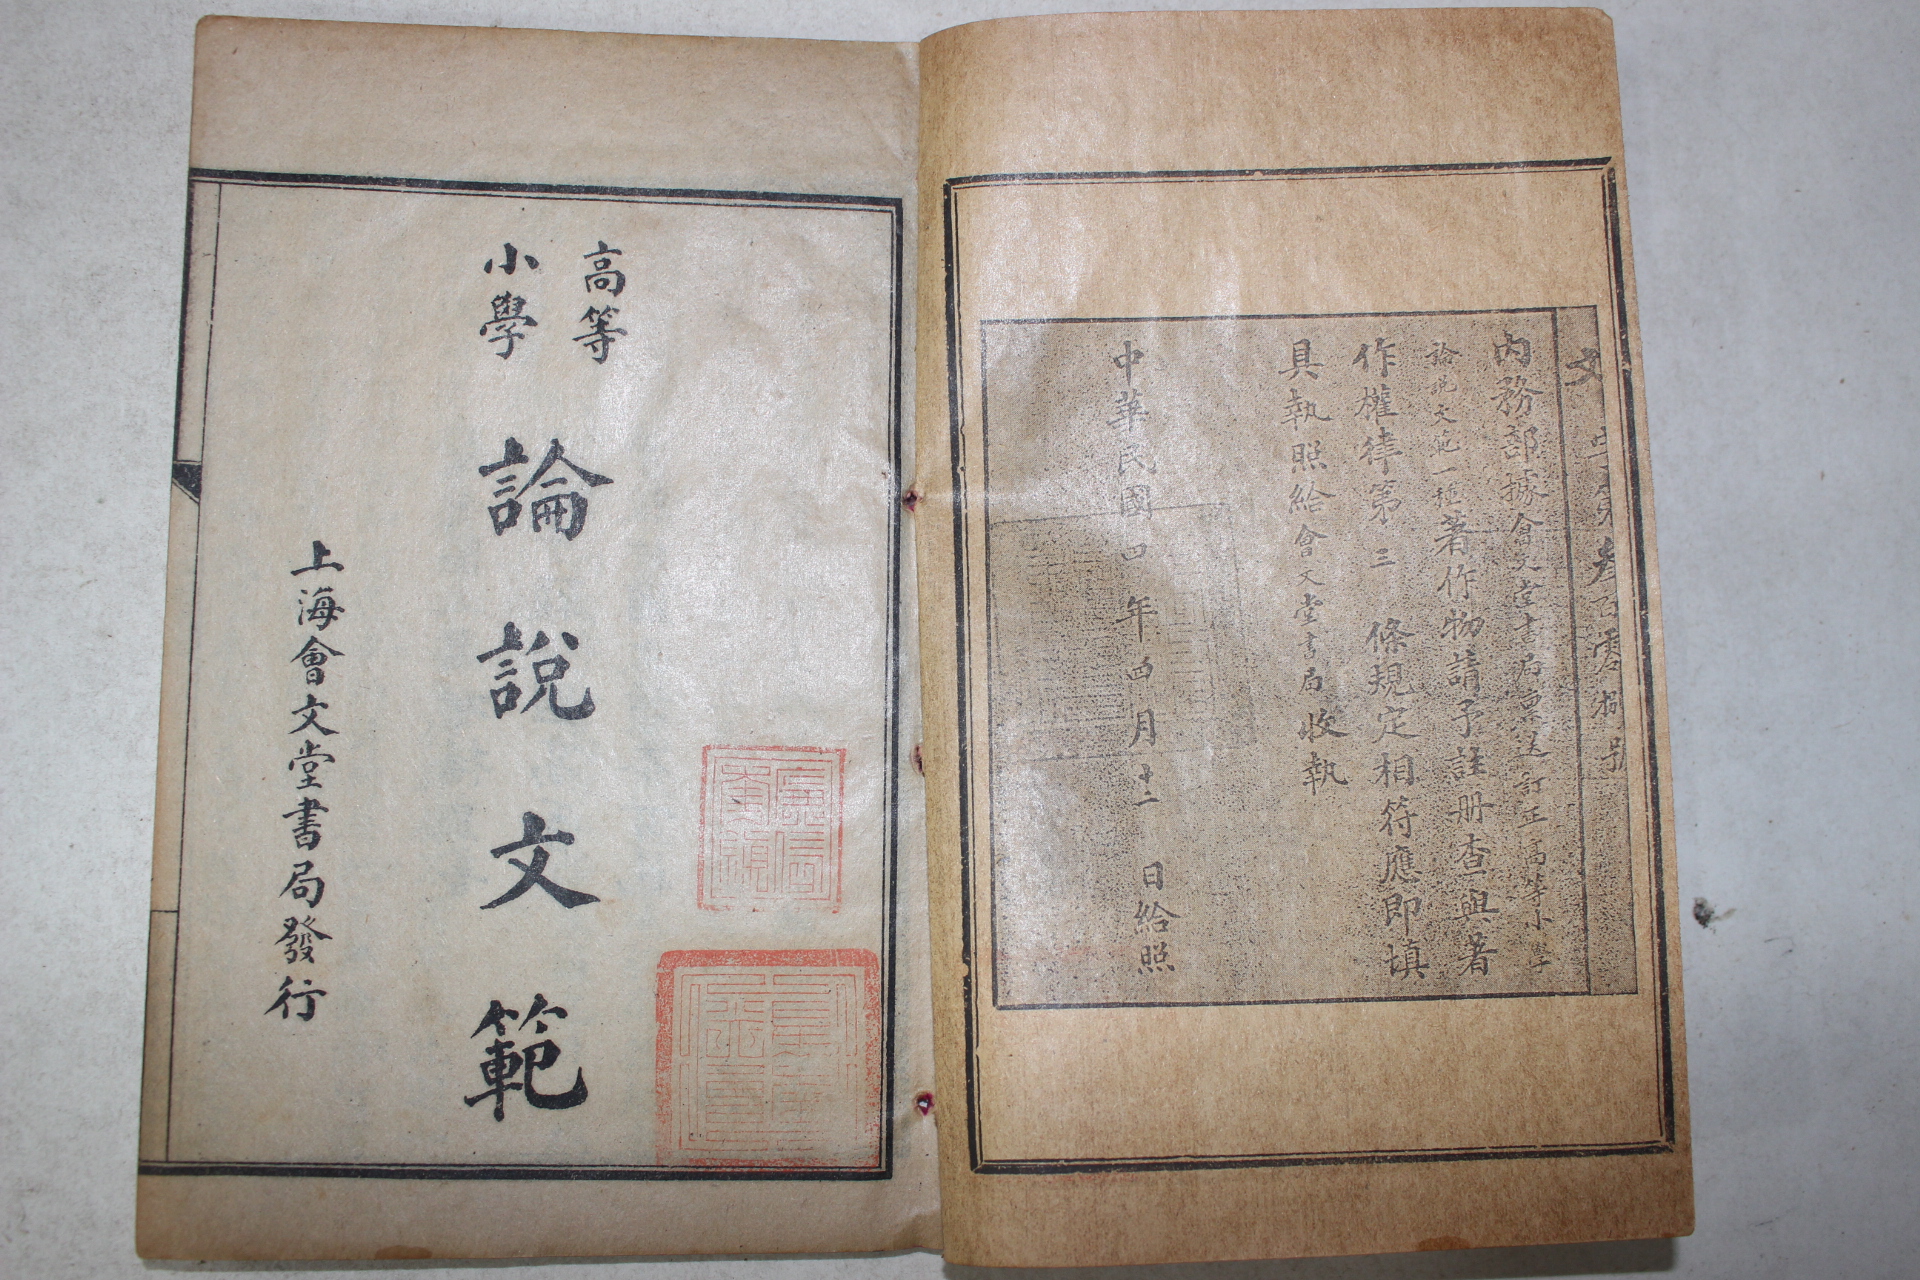 內務部據會文堂書局稟送訂正高等小學
論說文範一種著作物請予註册查與著
作權律第三條規定相符應即填
具執照給會文堂書局收執
中華民國四年四月十二日給照
高等
小學
論說文範
上海會文堂書局發行